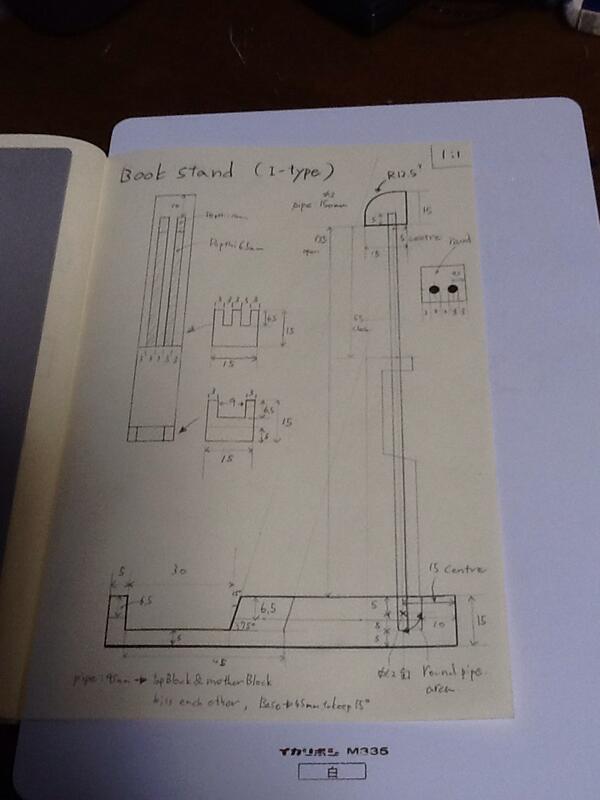 Book Stand (I-type)
1:1
R12.5
pipe 150mm
15
5
5 centre
15
round
Depth: 6.5mm
3 3 3 3 3
6.5
15
15
3 9 3
6.5
15
5
15
15 centre
5
30
6.5
6.5
75°
5
5
5
10
15
45
round pipe
area
pipe: 95mm → top Block & mother Block
kiss each other, Base → 45mm to keep 15°
イカリボシ M335
白